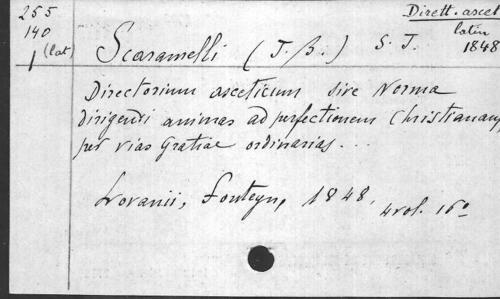 255
140
1 (lat)
Dirett. ascet
latin
1848
Scaramelli (J. B.) S. J.
Directorium asceticum sive Norma
dirigendi animas ad perfectionem Christianam,
per vias gratiae ordinarias...
Lovanii, Fonteyn, 1848, 4 vol. 16º